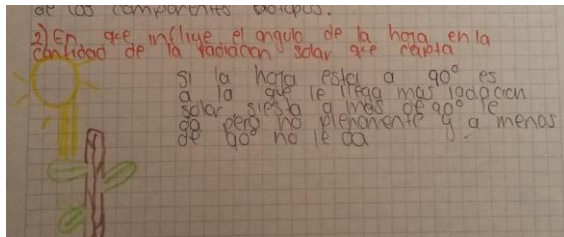 de los componentes bioticos.
2) En que inflige el angulo de la hoja en la
cantidad de la radiacion solar que capta
si la hoja esta a 90° es
a la que le llega mas radacion
solar si esta a mas de 90° le
da pero no plenamente y a menos
de 90° no le da